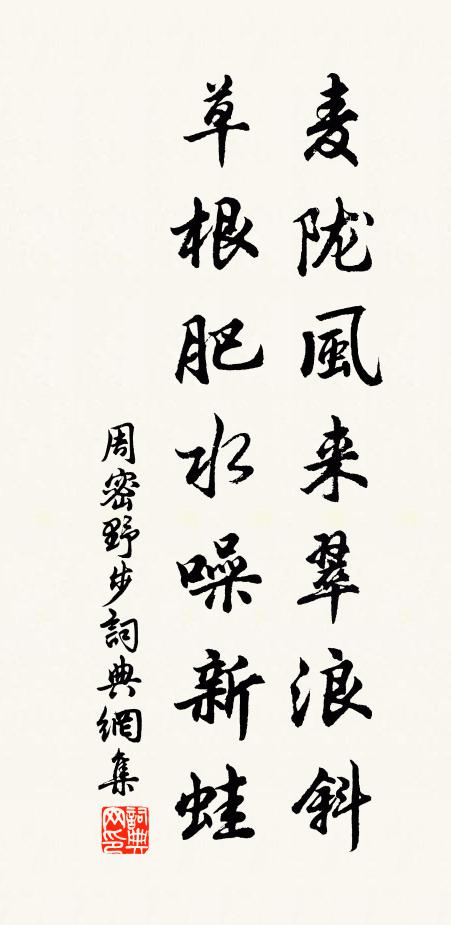 麦陇風来翠浪斜
草根肥水噪新蛙
周密野步詞典網集
詞典网印